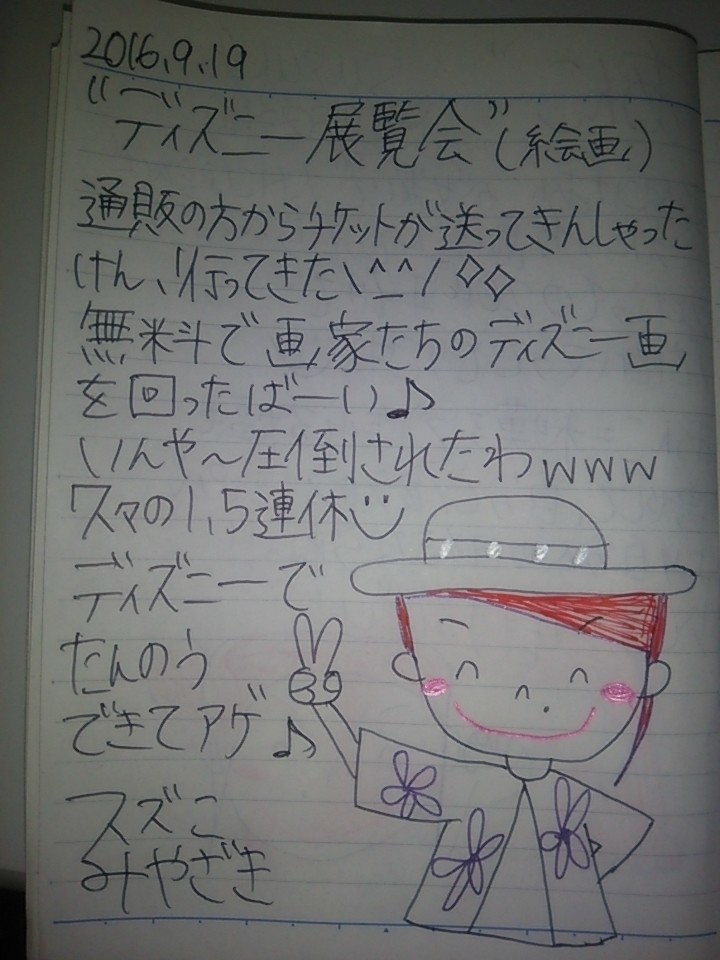 2016.9.19
“ディズニー展覧会”(絵画)
通販の方からチケットが送ってきんしゃった
けん、行ってきた\^_^/◇◇
無料で画家たちのディズニー画
を回ったばーい♪
いんや〜圧倒されたわwww
スマの1.5連休
ディズニーで
たんのう
できてアゲ♪
スズこ
みやざき